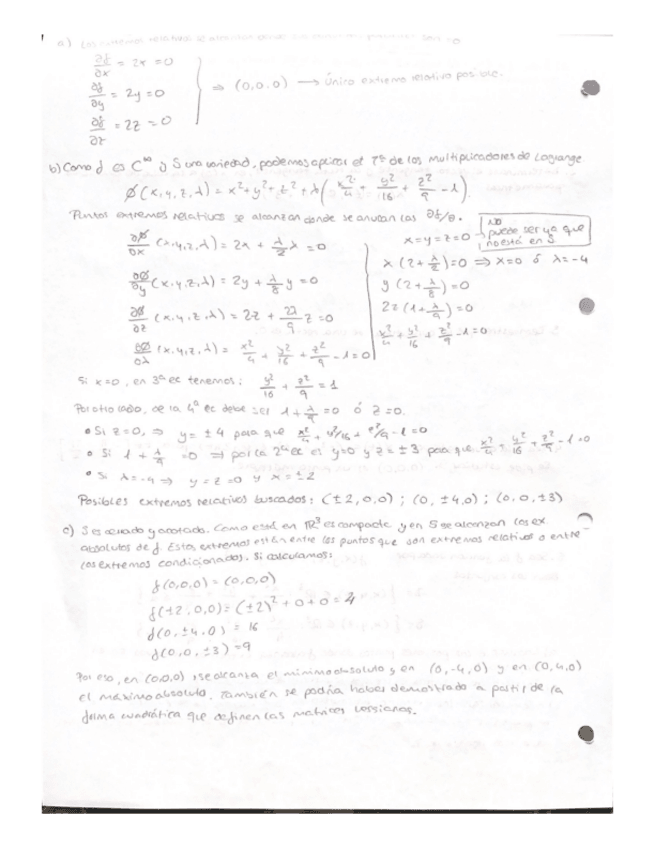 a) Los extremos relativos se alcanzan donde las = 0
∂f/∂x = 2x = 0
∂f/∂y = 2y = 0 ⇒ (0,0,0) → único extremo relativo posible.
∂f/∂z = 2z = 0
b) Como f es C^∞ y S una variedad, podemos aplicar el T^a de los multiplicadores de Lagrange
Ø(x,y,z,λ) = x²+y²+z²+λ(x²/4 + y²/16 + z²/9 - 1).
Puntos extremos relativos se alcanzan donde se anulan las ∂f/∂.
x=y=z=0 → NO puede ser ya que no está en S
∂Ø/∂x (x,y,z,λ) = 2x + λ/2 x = 0
x(2+λ/2)=0 ⇒ x=0 ó λ=-4
∂Ø/∂y (x,y,z,λ) = 2y + λ/8 y = 0
y(2+λ/8)=0
∂Ø/∂z (x,y,z,λ) = 2z + 2λ/9 z = 0
2z(1+λ/9)=0
∂Ø/∂λ (x,y,z,λ) = x²/4 + y²/16 + z²/9 - 1 = 0
x²/4 + y²/16 + z²/9 - 1 = 0
Si x=0, en 3ª ec tenemos: y²/16 + z²/9 = 1
Por otro lado, de la 4ª ec debe ser 1+λ/9 = 0 ó z=0.
• Si z=0, ⇒ y = ±4 para que x²/4 + y²/16 + z²/9 - 1 = 0
• Si 1+λ/9 = 0 ⇒ por la 2ª ec es y=0 y z=±3 para que x²/4 + y²/16 + z²/9 - 1 = 0
• Si λ=-4 ⇒ y=z=0 y x=±2
Posibles extremos relativos buscados: (±2,0,0); (0,±4,0); (0,0,±3)
c) S es cerrado y acotado. Como está en ℝ³ es compacto y en S se alcanzan los ex.
absolutos de f. Estos extremos están entre los puntos que son extremos relativos o entre
los extremos condicionados. Si calculamos:
f(0,0,0) = (0,0,0)
f(±2,0,0) = (±2)² + 0 + 0 = 4
f(0,±4,0) = 16
f(0,0,±3) = 9
Por eso, en (0,0,0) se alcanza el mínimo absoluto y en (0,-4,0) y en (0,4,0)
el máximo absoluto. También se podría haber demostrado a partir de la
forma cuadrática que definen las matrices